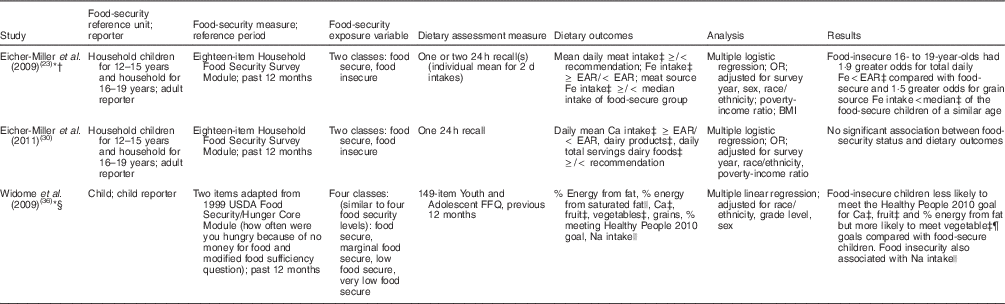 Study
Food-security
reference unit;
reporter
Food-security measure;
reference period
Food-security
exposure variable
Dietary assessment measure
Dietary outcomes
Analysis
Results
Eicher-Miller et al.
(2009)(23)*†
Household children
for 12–15 years
and household for
16–19 years; adult
reporter
Eighteen-item Household
Food Security Survey
Module; past 12 months
Two classes: food
secure, food
insecure
One or two 24 h recall(s)
(individual mean for 2 d
intakes)
Mean daily meat intake‡ ≥/<
recommendation; Fe intake‡
≥ EAR/< EAR; meat source
Fe intake‡ ≥/< median
intake of food-secure group
Multiple logistic
regression; OR;
adjusted for survey
year, sex, race/
ethnicity; poverty-
income ratio; BMI
Food-insecure 16- to 19-year-olds had
1·9 greater odds for total daily
Fe<EAR‡ compared with food-
secure and 1·5 greater odds for grain
source Fe intake<median‡ of the
food-secure children of a similar age
Eicher-Miller et al.
(2011)(30)
Household children
for 12–15 years
and household for
16–19 years; adult
reporter
Eighteen-item Household
Food Security Survey
Module; past 12 months
Two classes: food
secure, food
insecure
One 24 h recall
Daily mean Ca intake‡ ≥ EAR/
< EAR, dairy products‡, daily
total servings dairy foods‡
≥/< recommendation
Multiple logistic
regression, OR;
adjusted for survey
year, race/ethnicity,
poverty-income ratio
No significant association between food-
security status and dietary outcomes
Widome et al.
(2009)(36)*§
Child; child reporter
Two items adapted from
1999 USDA Food
Security/Hunger Core
Module (how often were
you hungry because of no
money for food and
modified food sufficiency
question); past 12 months
Four classes:
(similar to four
food security
levels): food
secure, marginal
food secure, low
food secure,
very low food
secure
149-item Youth and
Adolescent FFQ, previous
12 months
% Energy from fat, % energy
from saturated fat||, Ca‡,
fruit‡, vegetables‡, grains, %
meeting Healthy People 2010
goal, Na intake||
Multiple linear regression;
adjusted for race/
ethnicity, grade level,
sex
Food-insecure children less likely to
meet the Healthy People 2010 goal
for Ca‡, fruit‡ and % energy from fat
but more likely to meet vegetable‡¶
goals compared with food-secure
children. Food insecurity also
associated with Na intake||